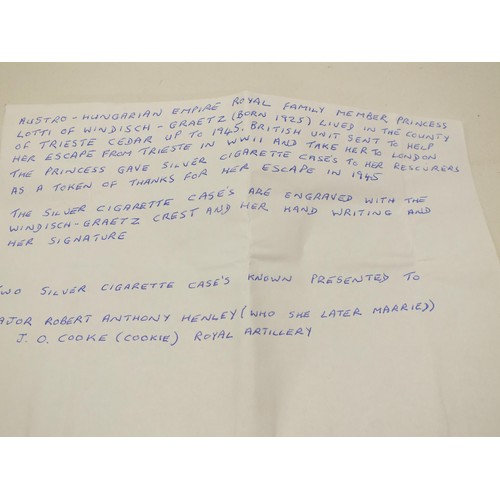 AUSTRO-HUNGARIAN EMPIRE ROYAL FAMILY MEMBER PRINCESS
LOTTI OF WINDISCH-GRAETZ (BORN 1925) LIVED IN THE COUNTY
OF TRIESTE CEDAR UP TO 1945. BRITISH UNIT SENT TO HELP
HER ESCAPE FROM TRIESTE IN WWII AND TAKE HER TO LONDON
THE PRINCESS GAVE SILVER CIGARETTE CASE'S TO HER RESCURERS
AS A TOKEN OF THANKS FOR HER ESCAPE IN 1945
THE SILVER CIGARETTE CASE'S ARE ENGRAVED WITH THE
WINDISCH-GRAETZ CREST AND HER HAND WRITING AND
HER SIGNATURE
TWO SILVER CIGARETTE CASE'S KNOWN PRESENTED TO
AJOR ROBERT ANTHONY HENLEY (WHO SHE LATER MARRIED)
J. O. COOKE (COOKIE) ROYAL ARTILLERY